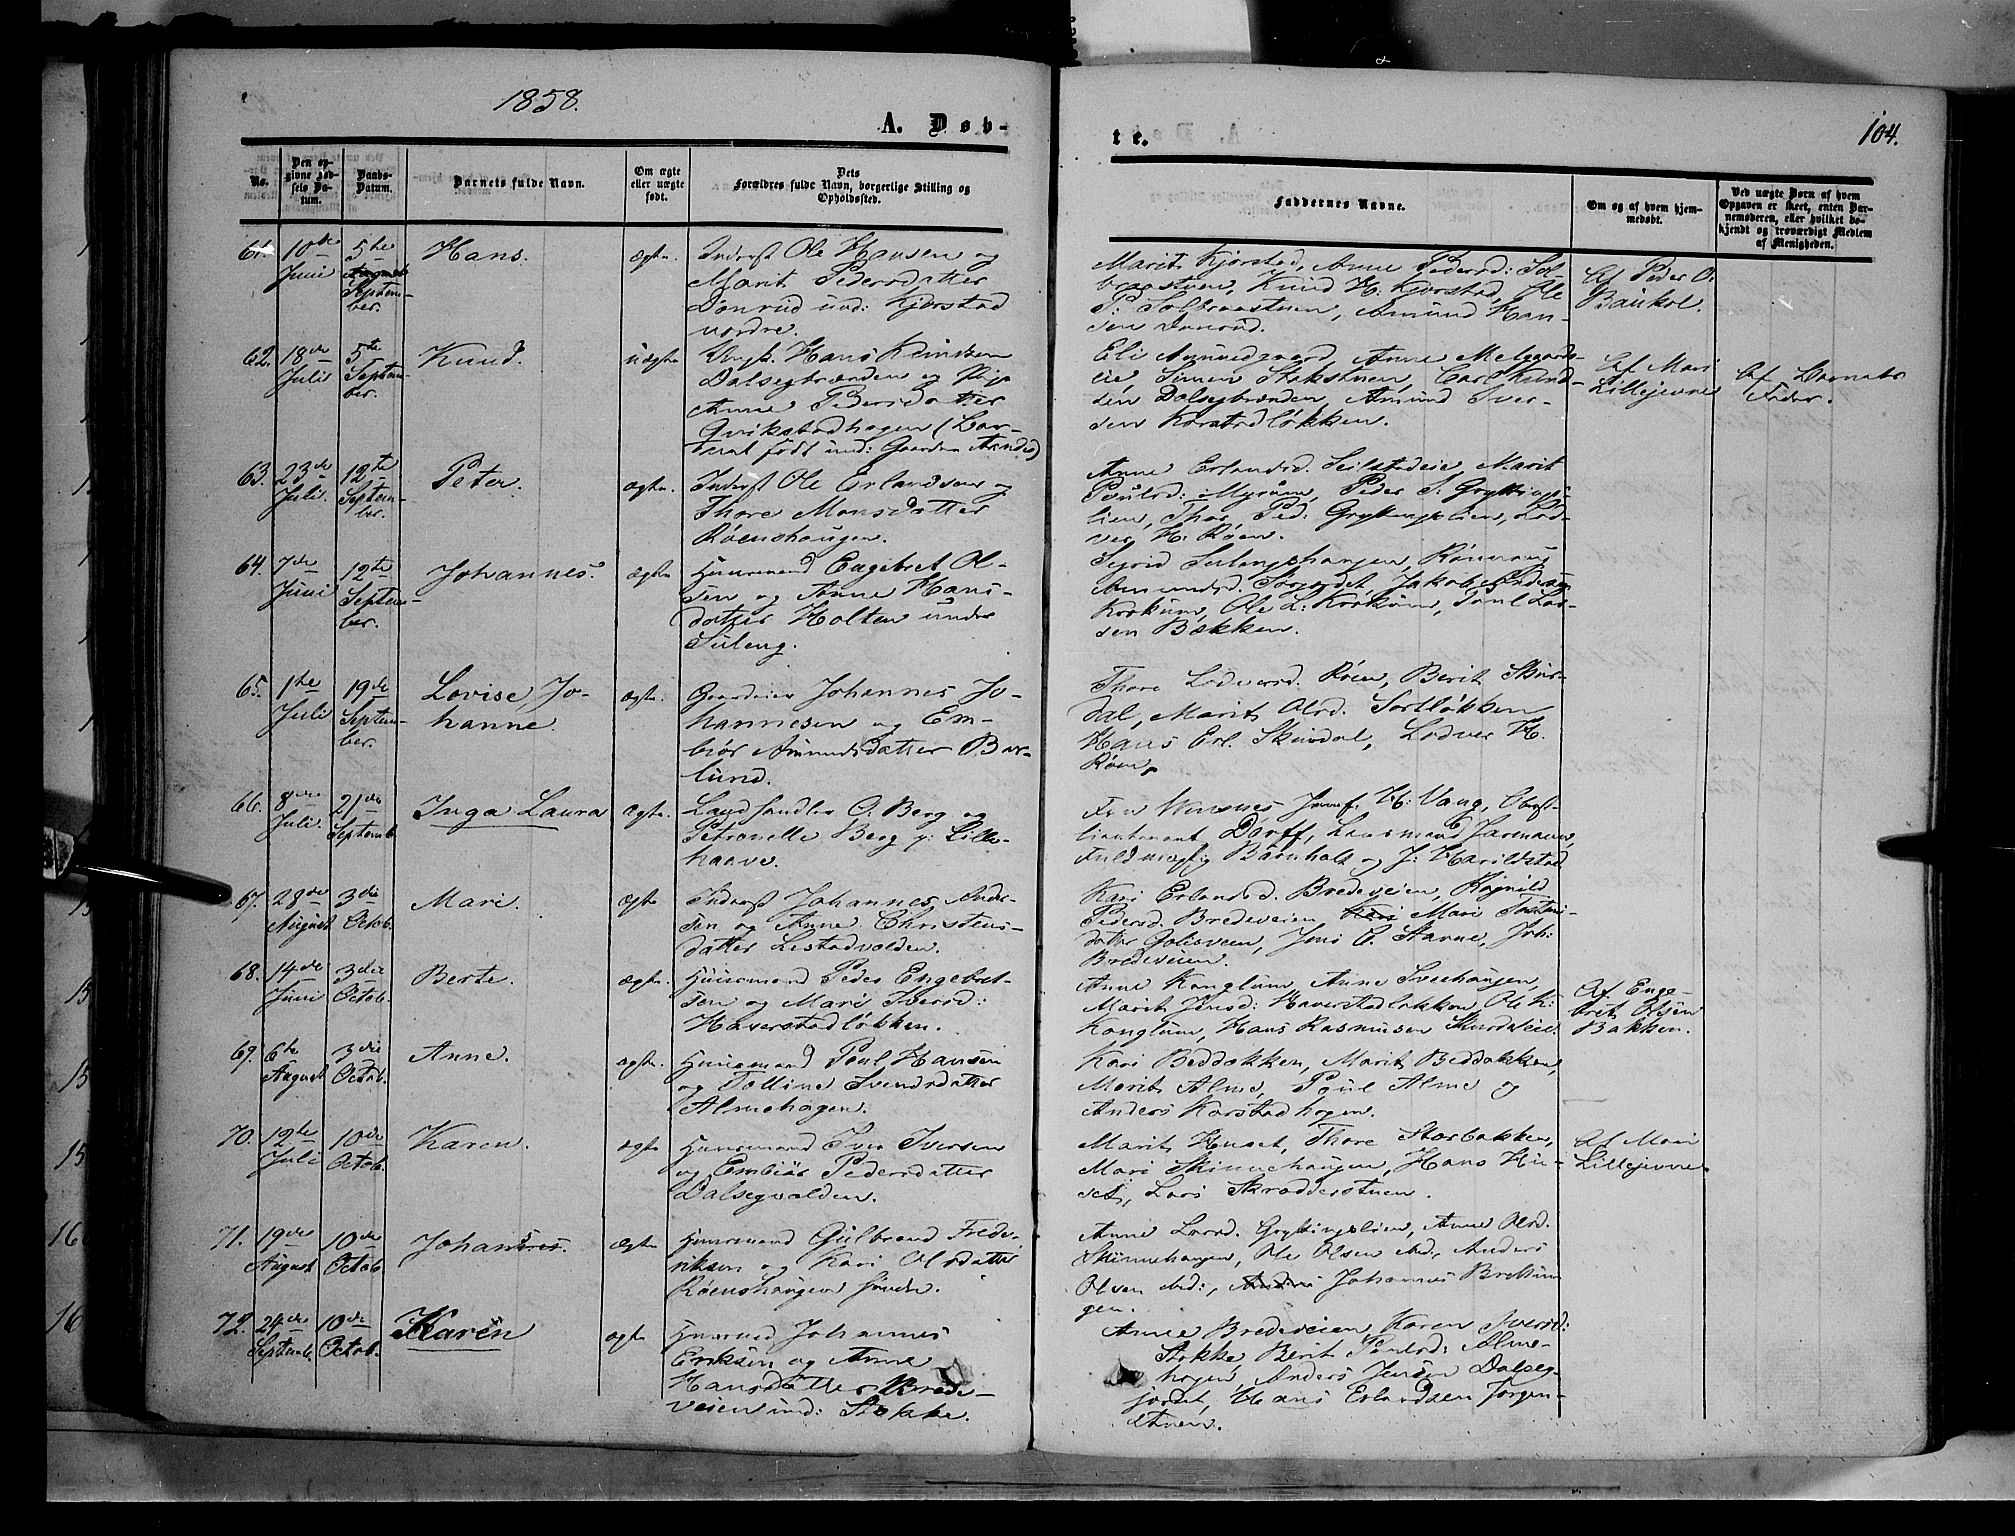 1858.
A. Døb-
te.
104.
No.
Den op-
givne Fød-
sels Da-
tum.
Daabs-
Datum.
Barnets fulde Navn.
Om ægte
eller uægte
født.
Dets
Forældres fulde Navn, borgerlige Stilling og
Opholdssted.
Faddernes Navne.
Om og af hvem hjem-
medøbt.
Ved uægte Børn af hvem
Opgaven er skeet, enten Bar-
nemoderen, eller hvilket be-
kjendt og troværdigt Medlem
af Menigheden.
61.
10de
Juni
5te
August
Septem-
ber.
Hans.
ægte.
Inderst Ole Hansen og
Marit Pedersdatter
Donrud und: Kjørstad
nordre.
Marit Kjorstad, Anne Pedersd: Sol-
braastuen, Knud H: Kjorstad, Ole
P: Solbraastuen, Amund Han-
sen Donrud.
Af Peder O.
Baukol.
62.
18de
Juli
5te
Septem-
ber.
Knud.
uægte
Ungk. Hans Knudsen
Dalsegbrænden og Pige
Anne Pedersdatter
Qvikstadhagen (Bar-
net født und: Gaarden
Eli Amundgaard, Anne Melgaards-
eie, Simen Stokstuen, Carl Knud-
sen Dalsegbrænden, Amund Iver-
sen Korstadløkken.
Af Mari
Lillejevne
Af Barnets
Fader.
63.
23de
Juli.
12te
Septem-
ber.
Peter.
ægte.
Inderst Ole Erlandsen og
Thore Monsdatter
Røenshaugen.
Anne Erlandsd. Seilstadeie, Marit
Poulsd: Myrum, Peder S: Gryttings-
lien, Thor Ped: Gryttingslien, Lod-
ver H. Røen.
64.
7de
Juni
12te
Septem-
ber.
Johannes.
ægte.
Huusmand Engebret Ol-
sen og Anne Hans-
datter Holten under
Suleng.
Sigrid Sulengshaugen, Rønnaug
Amundsd. Jakob Pedersen
Korkum, Ole L. Korkum, Poul Lar-
sen Bakken.
65.
1ste
Juli
19de
Septem-
ber.
Lovise Jo-
hanne
ægte.
Gaardeier Johannes Jo-
hannesen og Em-
biør Amundsdatter Bor-
lund.
Thore Lodversd. Røen, Berit Skur-
dal, Marit Olsd. Sortløkken
Hans Erl. Skurdal, Lodver H.
Røen.
66.
8de
Juli.
21de
Septemb.
Inga Laura
ægte.
Landhandler O. Berg og
Petronelle Berg p: Lille-
haave.
Fru Winsnes Jomf. H: Vang, Oberst-
lieutenant Dorff, Lensmand Jarmann,
Fuldmægtig Barnholt og J: Harildstad
67.
28de
August
3die
Octob.
Mari.
ægte
Inderst Johannes Ander-
sen og Anne Christens-
datter Listadvolden.
Kari Erlandsd. Bredeveien, Ragnild
Pedersd. Bredeveien, Mari Torsten-
datter Jolisveen, Jens C. Stavne, Joh:
Bredeveien.
68.
14de
Juni
3die
Octob.
Berte.
ægte.
Huusmand Peder Engebret-
sen og Mari Iversd:
Haverstadløkken.
Anne Konglum, Anne Sveehaugen,
Marit Jensd: Haverstadløkken, Ole K:
Konglum, Hans Rasmusen Skurdaleie.
Af Enge-
bret Olsen
Bakken.
69.
6te
August
3die
Octob.
Anne.
ægte.
Huusmand Poul Hansen
og Tolline Svendsdatter
Almehagen.
Kari Beddokken, Marit Beddokken,
Marit Alme, Poul Alme og
Anders Korstadhagen.
70.
12te
Juli
10de
Octob.
Karen.
ægte
Huusmand Iver Iversen
og Embiør Pedersdatter
Dalsegvolden.
Marit Huset, Thore Storbakken,
Mari Skinnehaugen, Hans Hu-
set, Lars Skrædderstuen.
Af Mari
Lillejevne
71.
19de
August
10de
Octob.
Johannes.
ægte
Huusmand Gulbrand Frede-
riksen og Kari Olsdatter
Røenshaugen søndre.
Anne Larsd. Gryttingslien, Anne Olsd.
Skinnehaugen, Ole Olsen ibd, Anders
Olsen ibd:, Anders Johannes Brettin-
gen.
72.
24de
Septemb.
10de
Octob.
Karen
ægte
Huusmd Johannes
Eriksen og Anne
Hansdatter Brede-
veien und: Stokke.
Anne Bredeveien, Karen Iversd:
Stokke, Berit Poulsd: Alme-
hagen, Anders Jensen Dalseg-
jordet, Hans Erlandsen Jørgen-
stuen.